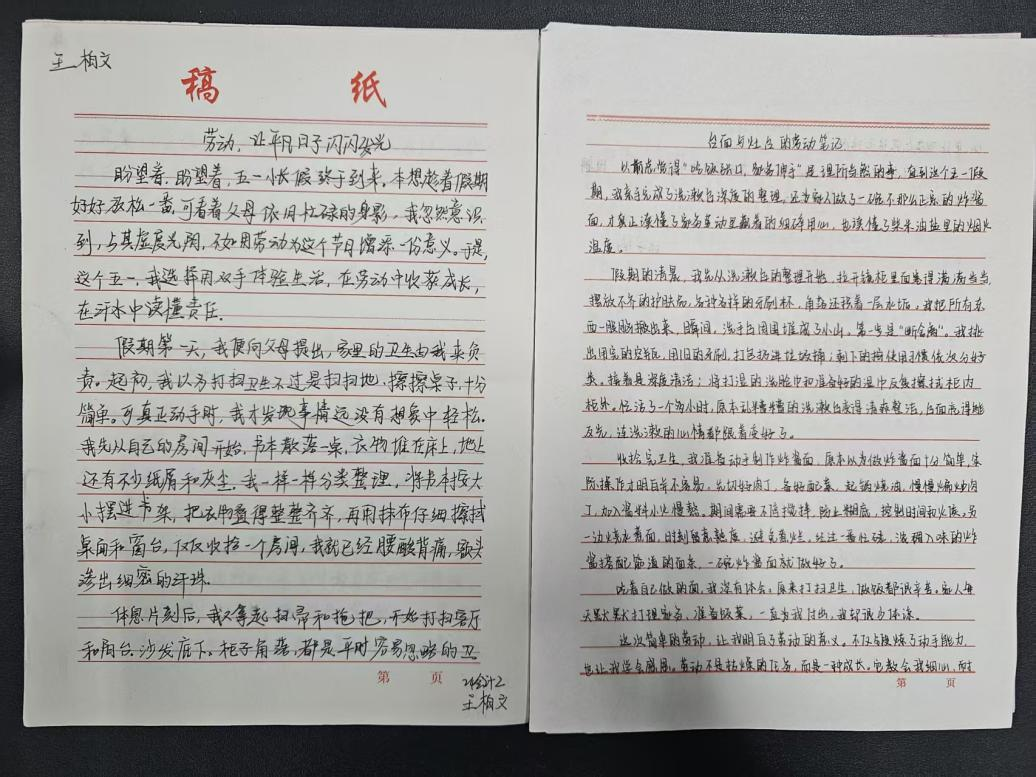 王柏文
稿 纸
劳动，让平凡日子闪闪发光
盼望着，盼望着，五一小长假终于到来。本想趁着假期
好好放松一番，可看着父母依旧忙碌的身影，我忽然意识
到，与其虚度光阴，不如用劳动为这个节日增添一份意义。于是，
这个五一，我选择用双手体验生活，在劳动中收获成长，
在汗水中读懂责任。
假期第一天，我便向父母提出，家里的卫生由我来负
责。起初，我以为打扫卫生不过是扫扫地、擦擦桌子，十分
简单。可真正动手时，我才发现事情远没有想象中轻松。
我先从自己的房间开始，书本散落一桌，衣物堆在床上，地上
还有不少纸屑和灰尘。我一样一样分类整理，将书本按大
小摆进书架，把衣物叠得整整齐齐，再用抹布仔细擦拭
桌面和窗台，仅仅收拾一个房间，我就已经腰酸背痛，额头
渗出细密的汗珠。
休息片刻后，我又拿起扫帚和拖把，开始打扫客厅
和阳台。沙发底下，柜子角落，都是平时容易忽略的卫
第 页
24会计2
王柏文
台面与灶台的劳动笔记
以前总觉得“吃饭张口，家务伸手”是理所当然的事，直到这个五一假
期，我亲手完成了洗漱台深度的整理，还为家人做了一碗不那么正宗的炸酱
面，才真正读懂了家务劳动里藏着的细碎用心，也读懂了柴米油盐里的烟火
温度。
假期的清晨，我先从洗漱台的整理开始，拉开镜柜里面塞得满满当当，
摆放不齐的护肤品，各种各样的牙刷杯，角落还积着一层水垢，我把所有东
西一股脑搬出来，瞬间，洗手台周围堆成了小山。第一步是“断舍离”。我挑
出用完的空瓶，用旧的牙刷，打包扔进垃圾桶；剩下的按使用习惯依次分好
类。接着是深度清洁；将打湿的洗脸巾和准备好的湿巾反复擦拭柜内
柜外。忙活了一个多小时，原本乱糟糟的洗漱台变得清爽整洁，台面亮得能
反光，连洗漱的心情都跟着变好了。
收拾完卫生，我准备动手制作炸酱面，原本以为做炸酱面十分简单，实
际操作才明白并不容易。先切好肉丁，备好配菜，起锅烧油，慢慢煸炒肉
丁，加入酱料小火慢熬。期间需要不停搅拌，防止糊底，控制时间和火候。另
一边烧水煮面，时刻留意熟度，避免煮烂。经过一番忙碌，浓稠入味的炸
酱搭配筋道的面条，一碗炸酱面就做好了。
吃着自己做的面，我深有体会。原来打扫卫生，做饭都很辛苦。家人每
天默默打理家务，准备饭菜，一直为我付出，我却很少体谅。
这次简单的劳动，让我明白了劳动的意义。不仅锻炼了动手能力，
也让我学会感恩。劳动不是枯燥的任务，而是一种成长。它教会我细心、耐
第 页